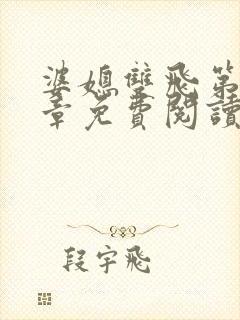 婆媳雙飛第
章免費閱讀
段宇飛